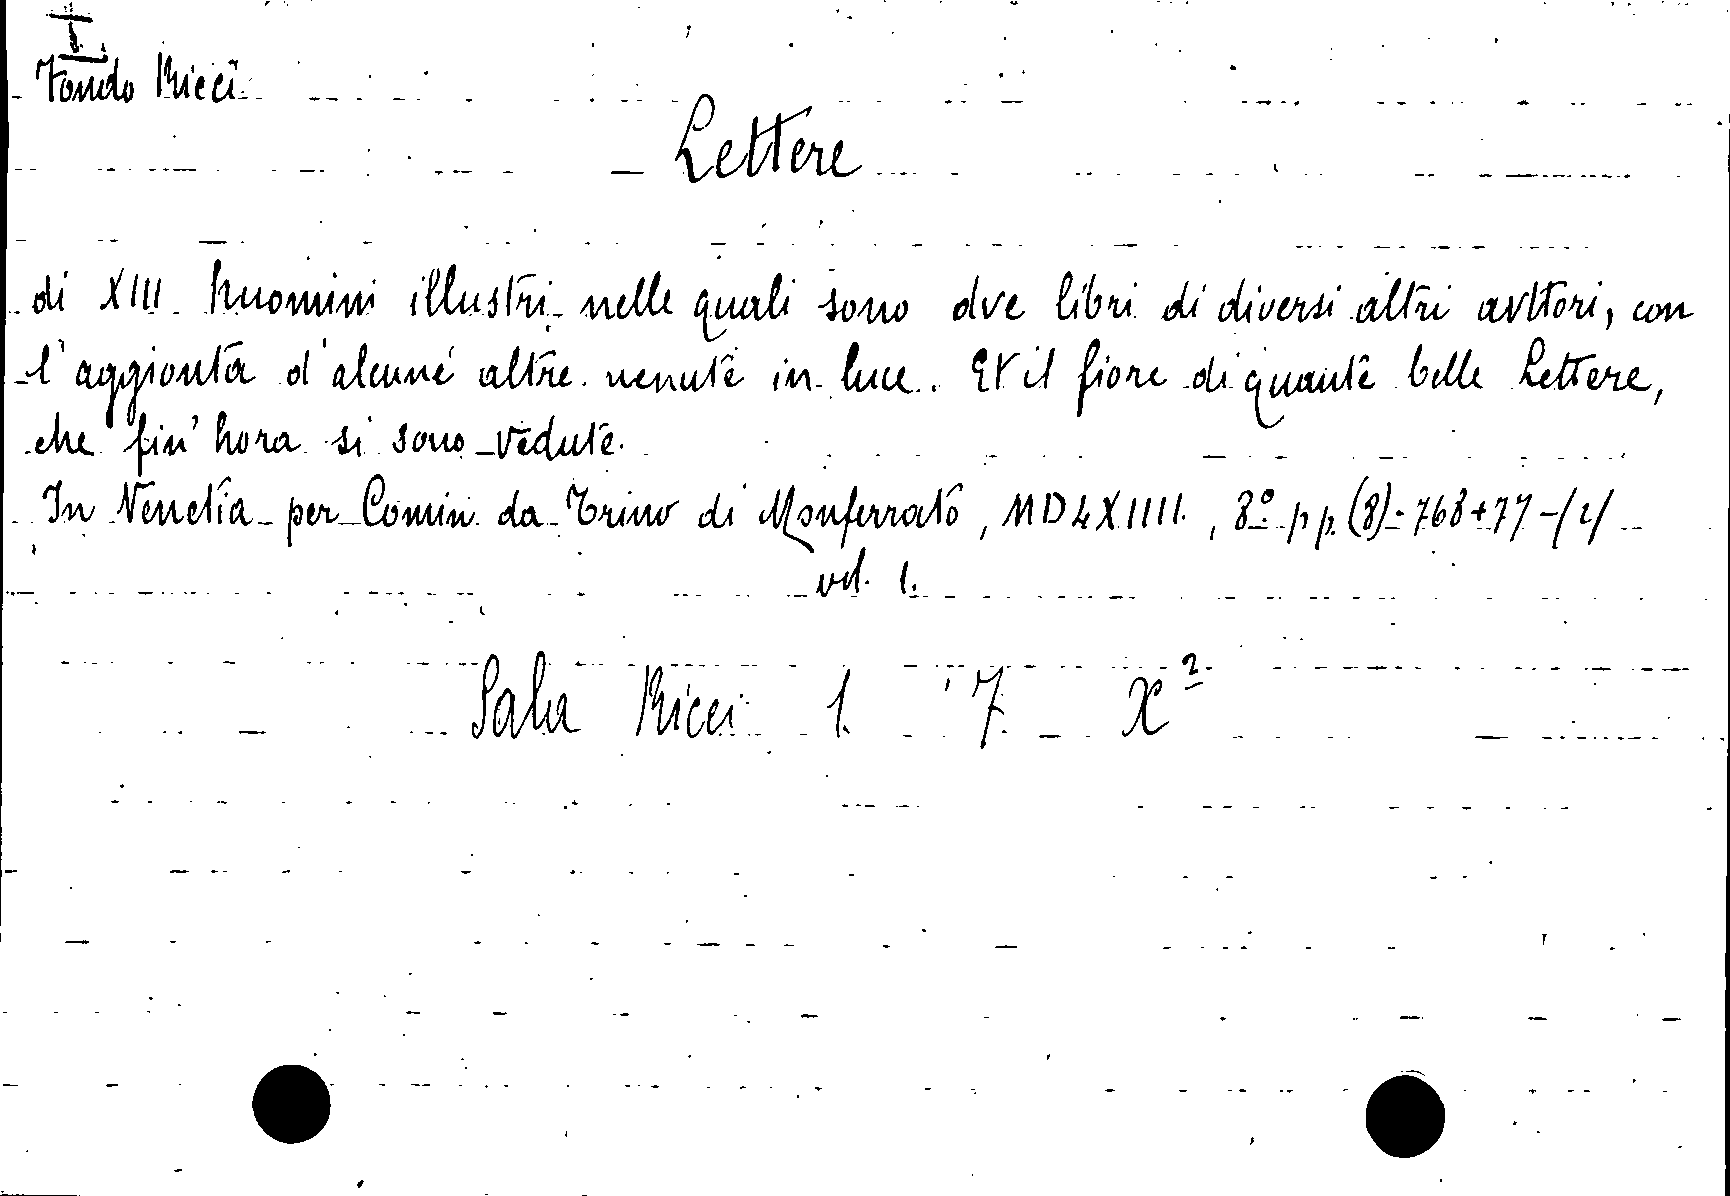 I.
Fondo Ricci
Lettere
di XIII huomini illustri nelle quali sono dve libri di diversi altri avttori, con
l'aggionta d'alcune altre venute in luce. Et il fiore di quante belle Lettere,
che fin'hora si sono vedute.
In Venetia per Comin da Trino di Monferrato, MDLXIIII., 8º pp. (8)-768+77-
vol. 1.
Sala Ricci 1. 7 X²